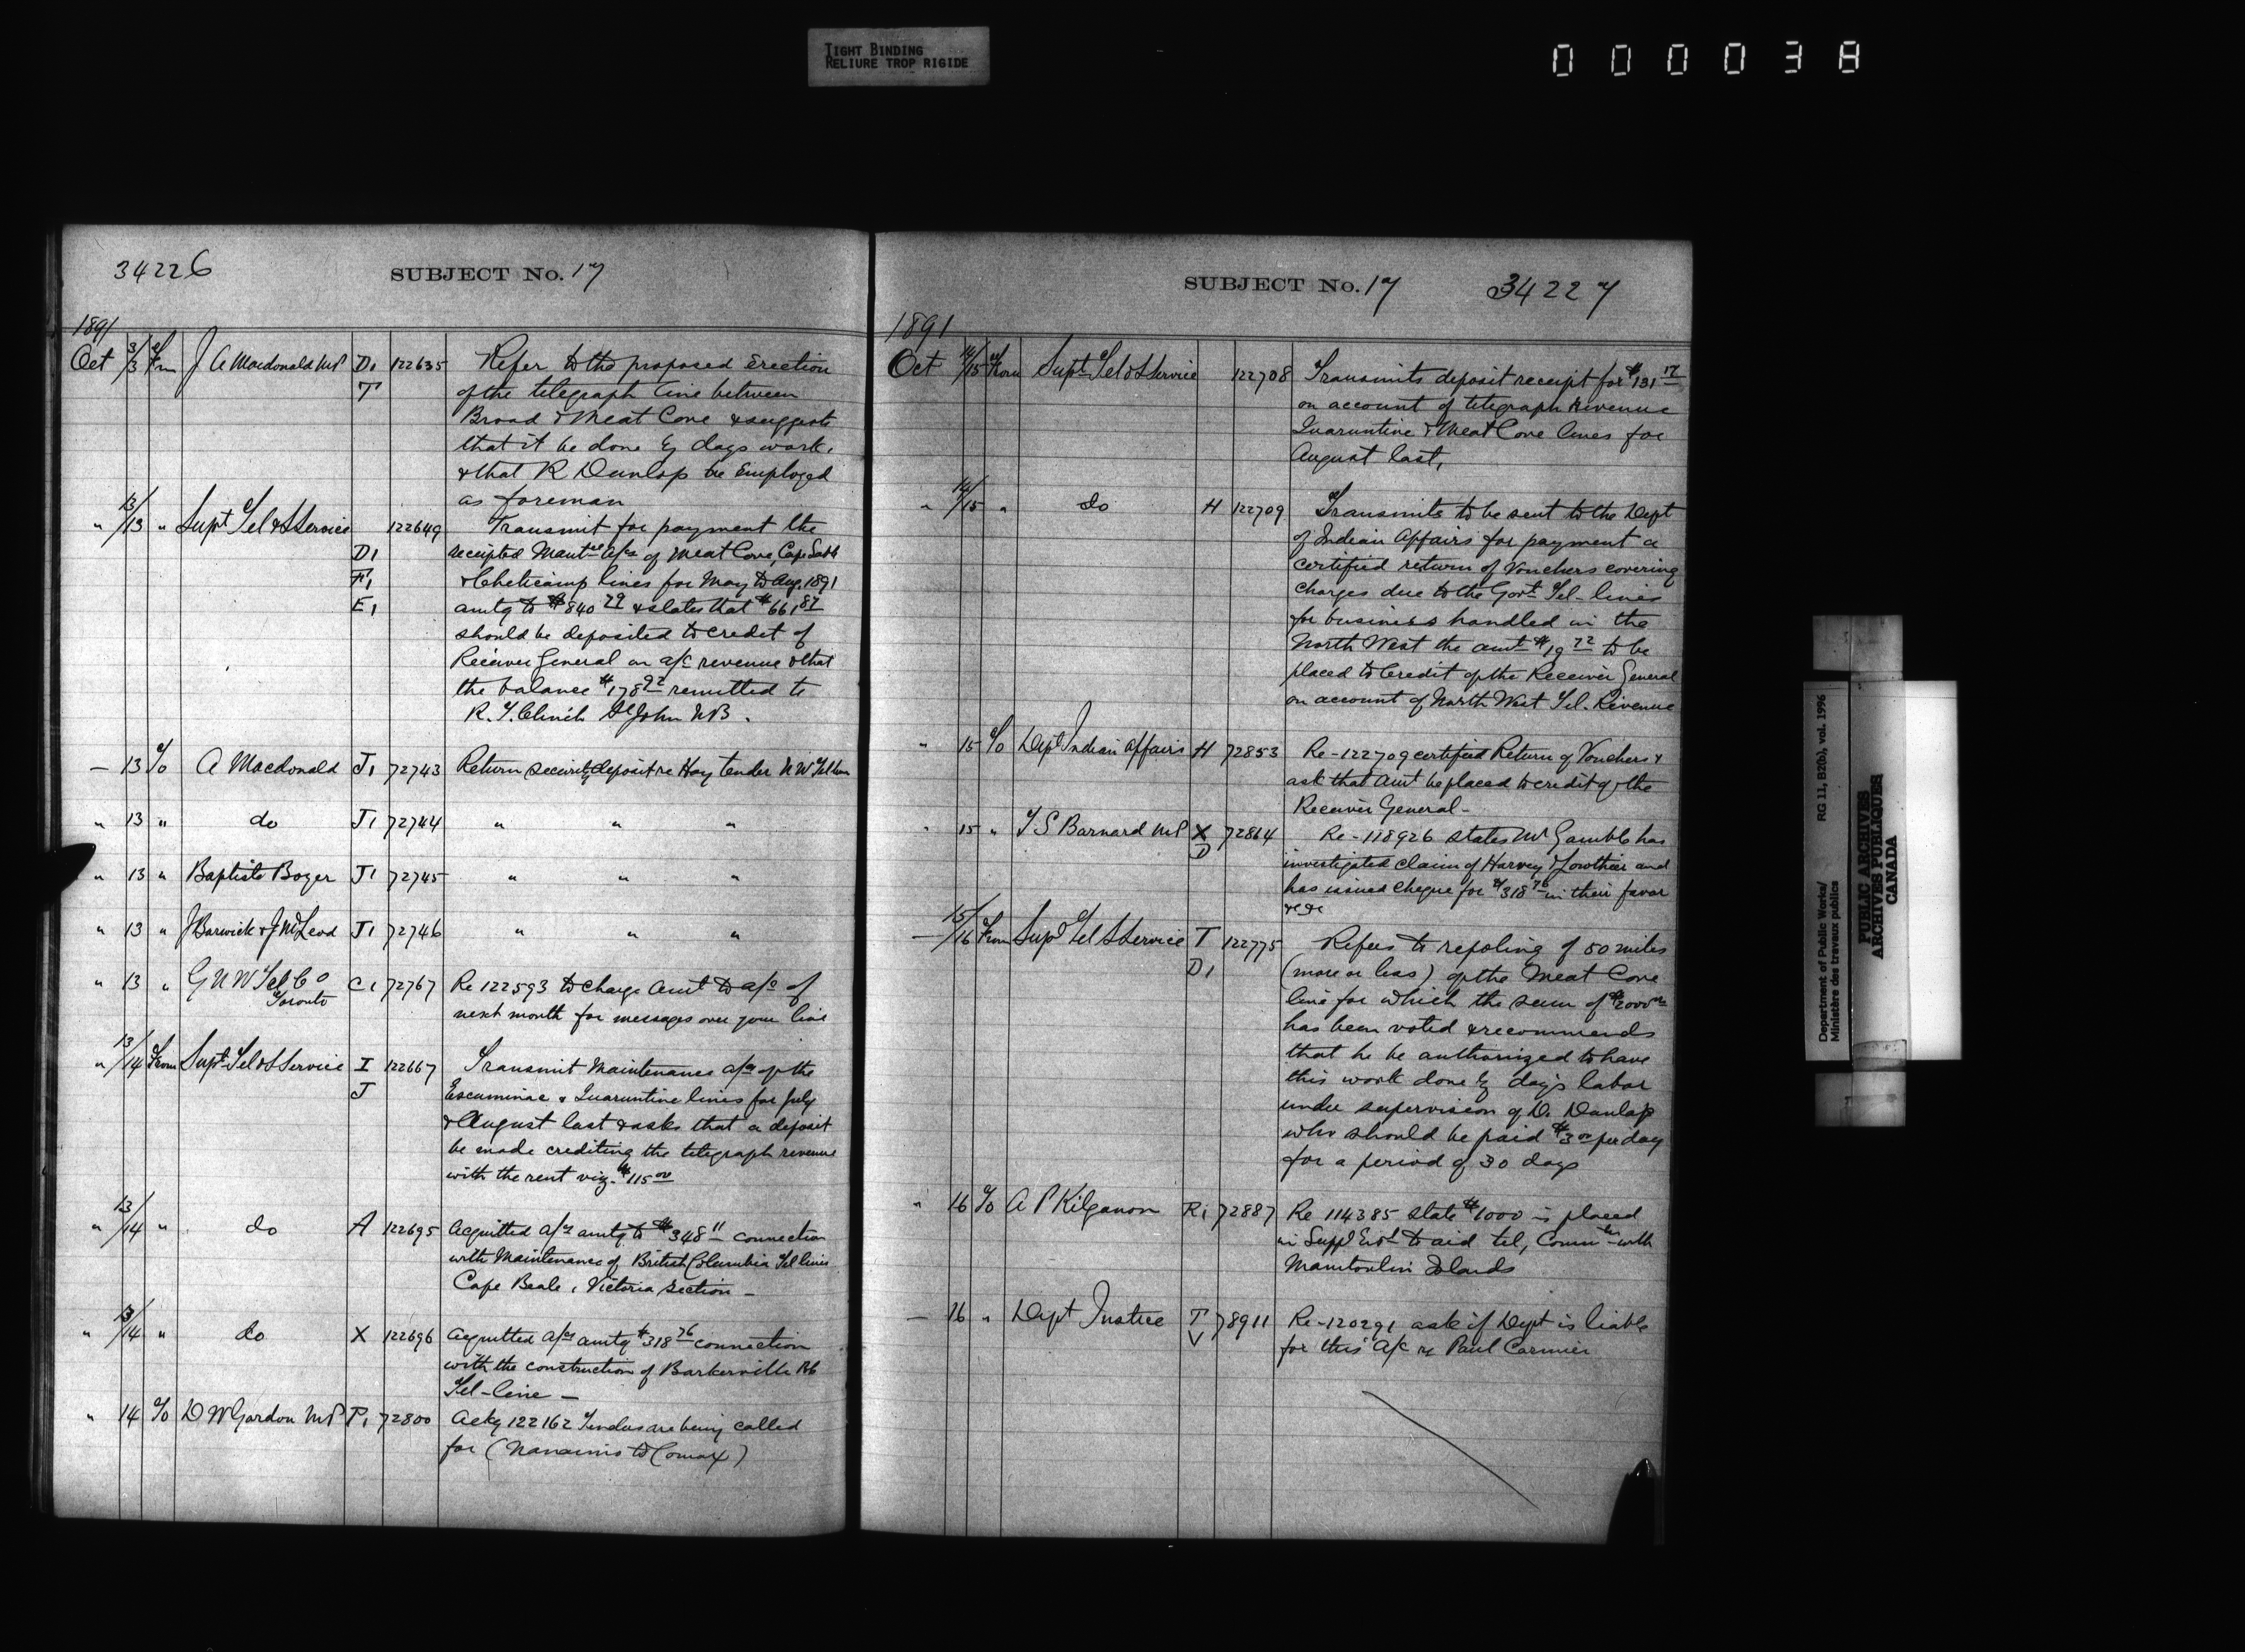 TIGHT BINDING
RELIURE TROP RIGIDE
000038
34226
SUBJECT No. 17
1891
Oct 3/3 From J A Macdonald MP D1 122635 Refer to the proposed Erection
T of the telegraph line between
Broad & Meat Cove & suggests
that it be done by days work,
& that R Dunlap be Employed
as foreman
" 12/13 " Supt Tel & S Service 122649 Transmit for payment the
D1 receipted Maintce a/cs of Meat Cove, Cape Sable
F1 & Cheticamp lines for May to Aug. 1891
E1 amtg to $840 79 & states that $661 87
should be deposited to credit of
Receiver General on a/c revenue & that
the balance $178 92 remitted to
R. T. Clinch St John N.B.
— 13 To A Macdonald J1 72743 Return security deposit re Hay tender N W Tel line
" 13 " do J1 72744 " " "
" 13 " Baptiste Boyer J1 72745 " " "
" 13 " J Barwick & J McLeod J1 72746 " " "
" 13 " G N W Tel Co C1 72767 Re 122593 to charge amt to a/c of
Toronto next month for messages over your line
" 13/14 From Supt Tel & S Service I 122667 Transmit Maintenance a/cs of the
J Escuminac & Quarantine lines for July
& August last & asks that a deposit
be made crediting the telegraph revenue
with the rent viz. $115 00
" 13/14 " do A 122695 Acquitted a/cs amtg to $348 11 connection
with Maintenance of British Columbia Tel lines
Cape Beale, Victoria section —
" 13/14 " do X 122696 Acquitted a/cs amtg $318 76 connection
with the construction of Barkerville BC
Tel-line —
" 14 To D W Gordon MP P1 72800 Ackg 122162 Tenders are being called
for (Nanaimo to Comox)
SUBJECT No. 17 34227
1891
Oct 14/15 From Supt Tel & S Service 122708 Transmits deposit receipt for $131 17
on account of telegraph Revenue
Quarantine & Meat Cove lines for
August last,
" 14/15 " do H 122709 Transmits to be sent to the Dept
of Indian Affairs for payment a
certified return of Vouchers covering
charges due to the Govt Tel-lines
for business handled in the
North West the amt $19 72 to be
placed to Credit of the Receiver General
on account of North West Tel. Revenue
" 15 To Dept Indian Affairs H 72853 Re-122709 certified Return of Vouchers &
ask that amt be placed to credit of the
Receiver General-
" 15 " F S Barnard MP X 72864 Re-118926 states Mr Gamble has
D investigated claim of Harvey & Lowther and
has issued cheque for $318 76 in their favor
&c &c
— 15/16 From Supt Tel S Service T 122775 Refers to repoling of 50 miles
D1 (more or less) of the Meat Cove
line for which the sum of $2000 00
has been voted & recommends
that he be authorized to have
this work done by day's labor
under supervision of D. Dunlap
who should be paid $3 00 per day
for a period of 30 days
" 16 To A P Kilganon R1 72887 Re 114385 state $1000 is placed
in Suppl Est to aid tel, Commtn with
Manitoulin Islands
— 16 " Dept Justice T 78911 Re-120291 ask if Dept is liable
V for this a/c re Paul Carmier
Department of Public Works/
Ministère des travaux publics
RG 11, B2(b), vol. 1996
PUBLIC ARCHIVES
ARCHIVES PUBLIQUES
CANADA